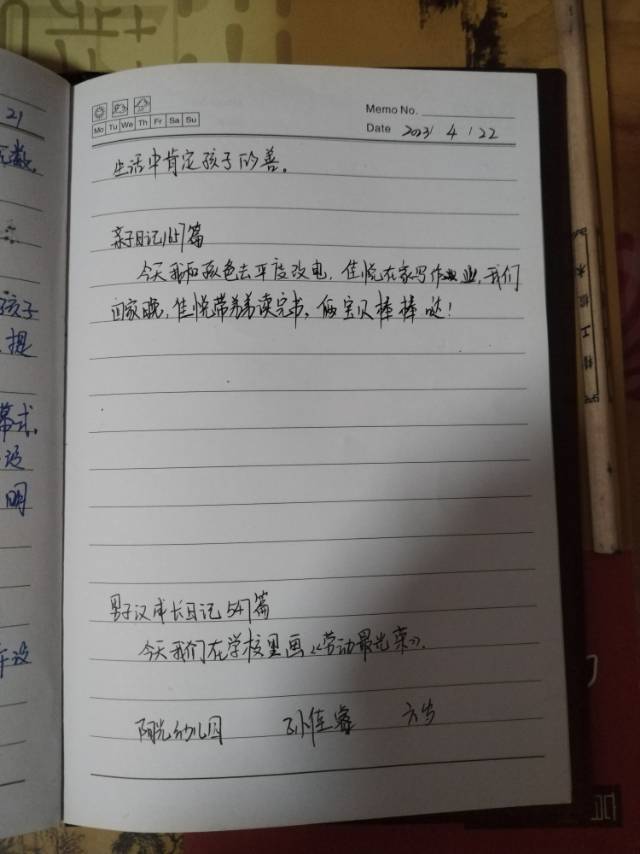 Memo No.
Mo Tu We Th Fr Sa Su
Date 2023 / 4 / 22
生活中肯定孩子的善。
亲子日记1657篇
今天我和 去平度改电,佳悦在家写作业,我们
回家晚,佳悦带弟弟读完书,俩宝贝棒棒哒!
男子汉成长日记547篇
今天我们在学校里画《劳动最光荣》.
阳光幼儿园 孙佳睿 六岁
21
数,
孩子
提
幕求,
明
设